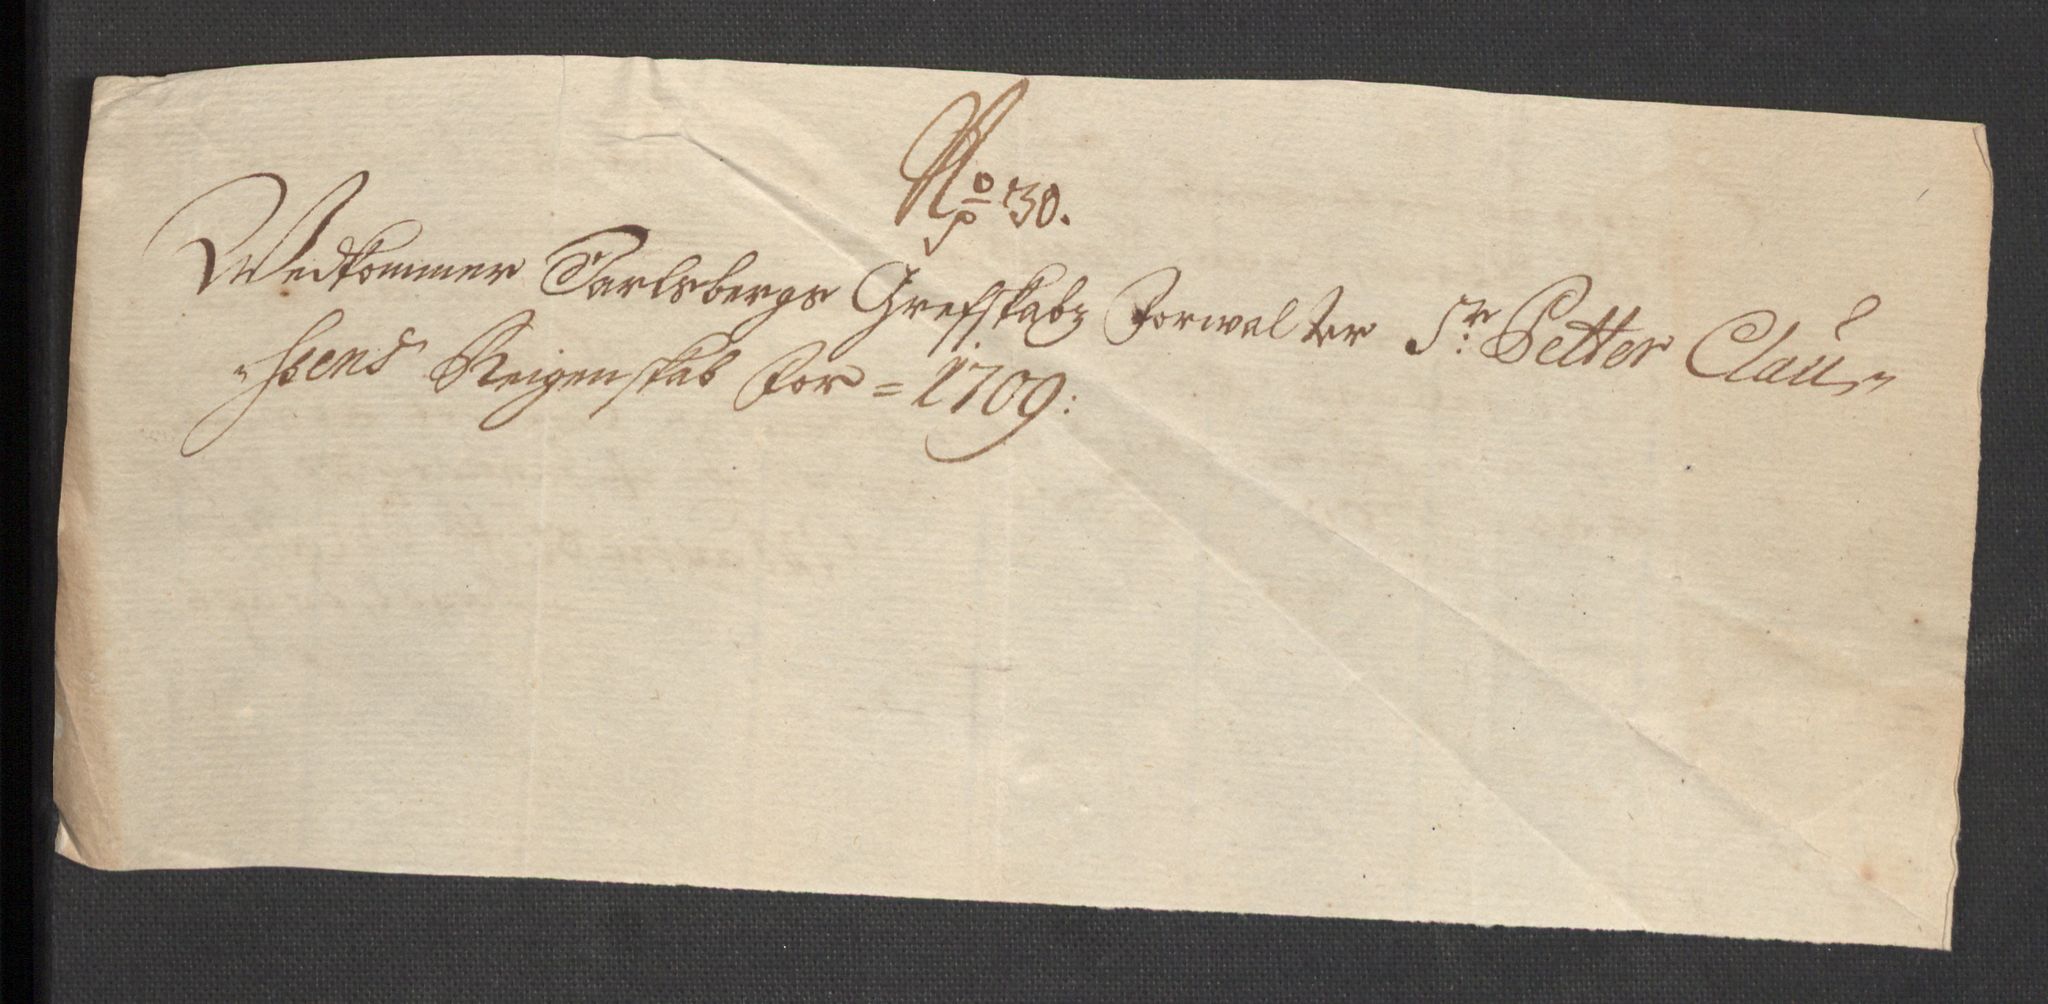 No 30.
Wedkommer Jarlsbergs Grefskabz Forwalter Sr: Petter Clau-
-ssens Reigenskab For = 1709: